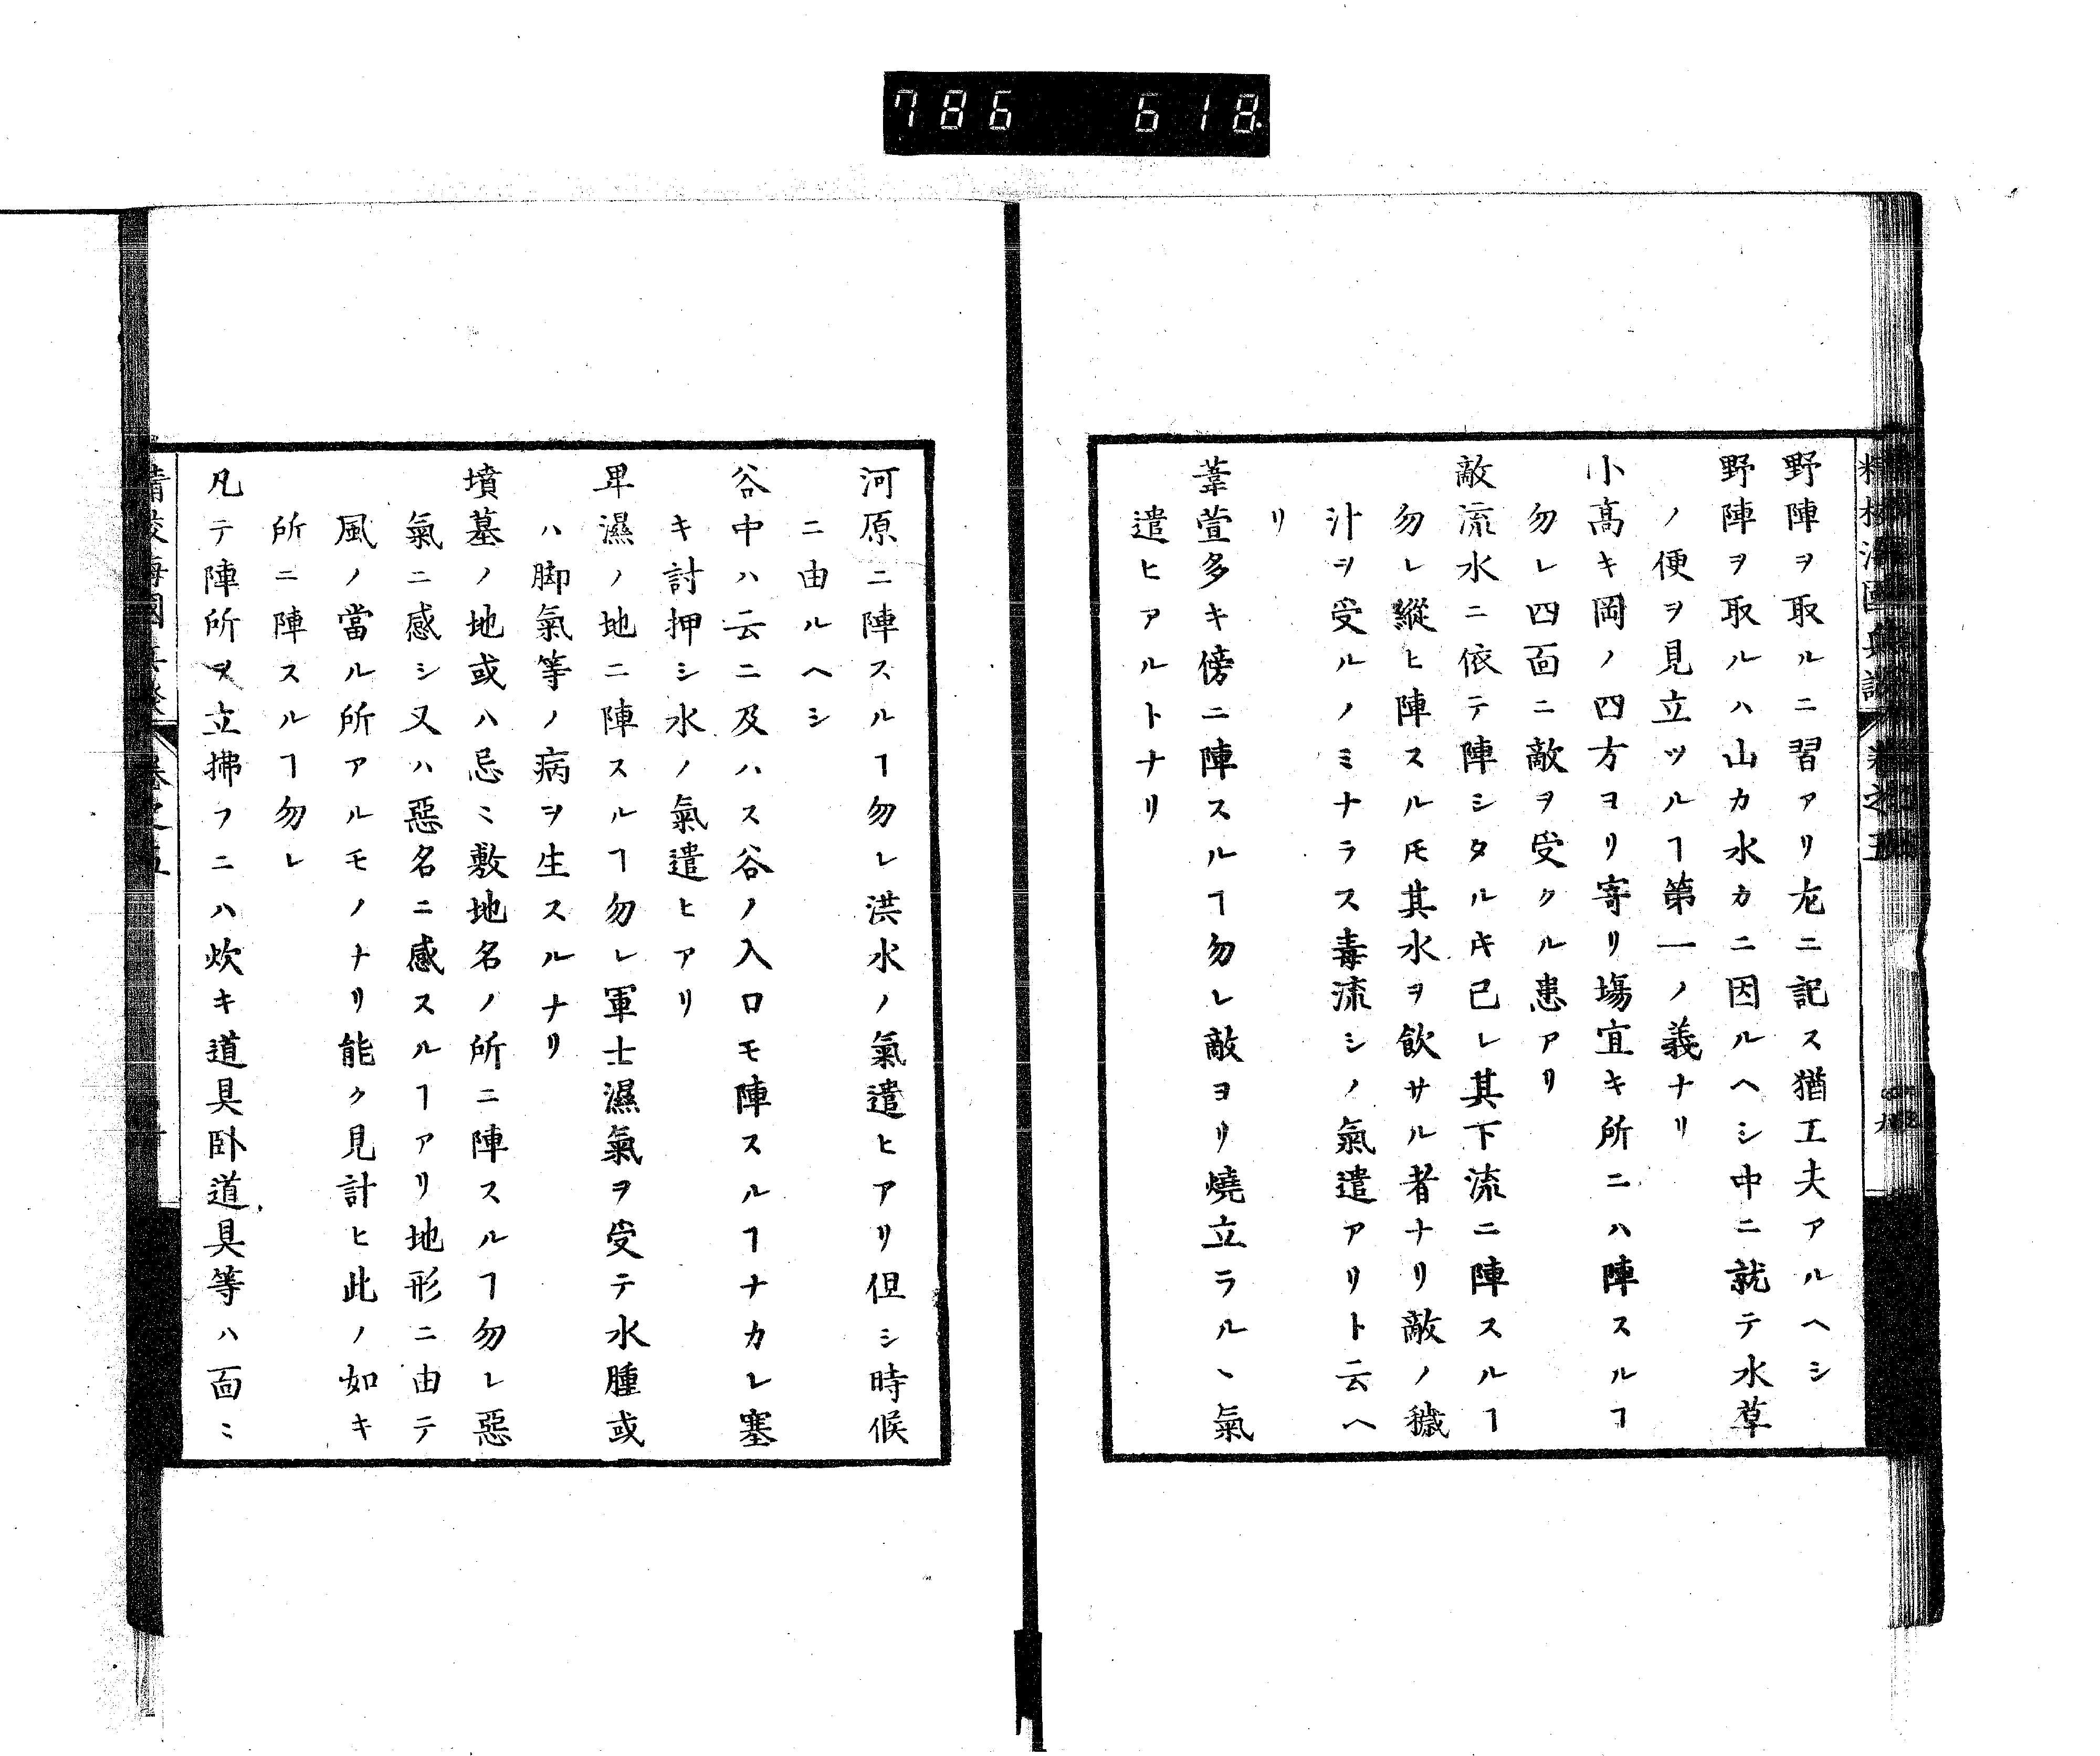 786 618
野陣ヲ取ルニ習アリ左ニ記ス猶工夫アルヘシ
野陣ヲ取ルハ山カ水カニ因ルヘシ中ニ就テ水草
ノ便ヲ見立ツルヿ第一ノ義ナリ
小高キ岡ノ四方ヨリ寄リ塲宜キ所ニハ陣スルヿ
勿レ四面ニ敵ヲ受クル患アリ
敵流水ニ依テ陣シタルキ己レ其下流ニ陣スルヿ
勿レ縱ヒ陣スルモ其水ヲ飮サル者ナリ敵ノ穢
汁ヲ受ルノミナラス毒流シノ氣遣アリト云ヘ
リ
葦萱多キ傍ニ陣スルヿ勿レ敵ヨリ燒立ラルヽ氣
遣ヒアルトナリ
河原ニ陣スルヿ勿レ洪水ノ氣遣ヒアリ但シ時候
ニ由ルヘシ
谷中ハ云ニ及ハス谷ノ入口モ陣スルヿナカレ塞
キ討押シ水ノ氣遣ヒアリ
卑濕ノ地ニ陣スルヿ勿レ軍士濕氣ヲ受テ水腫或
ハ脚氣等ノ病ヲ生スルナリ
墳墓ノ地或ハ忌ミ敷地名ノ所ニ陣スルヿ勿レ惡
氣ニ感シ又ハ惡名ニ感スルヿアリ地形ニ由テ
風ノ當ル所アルモノナリ能ク見計ヒ此ノ如キ
所ニ陣スルヿ勿レ
凡テ陣所ヲ立拂フニハ炊キ道具臥道具等ハ面ミ